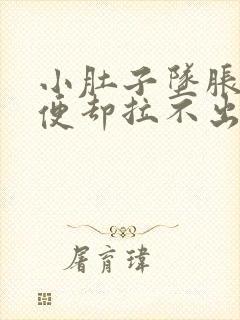 小肚子坠胀
便却拉不出
屠育玮